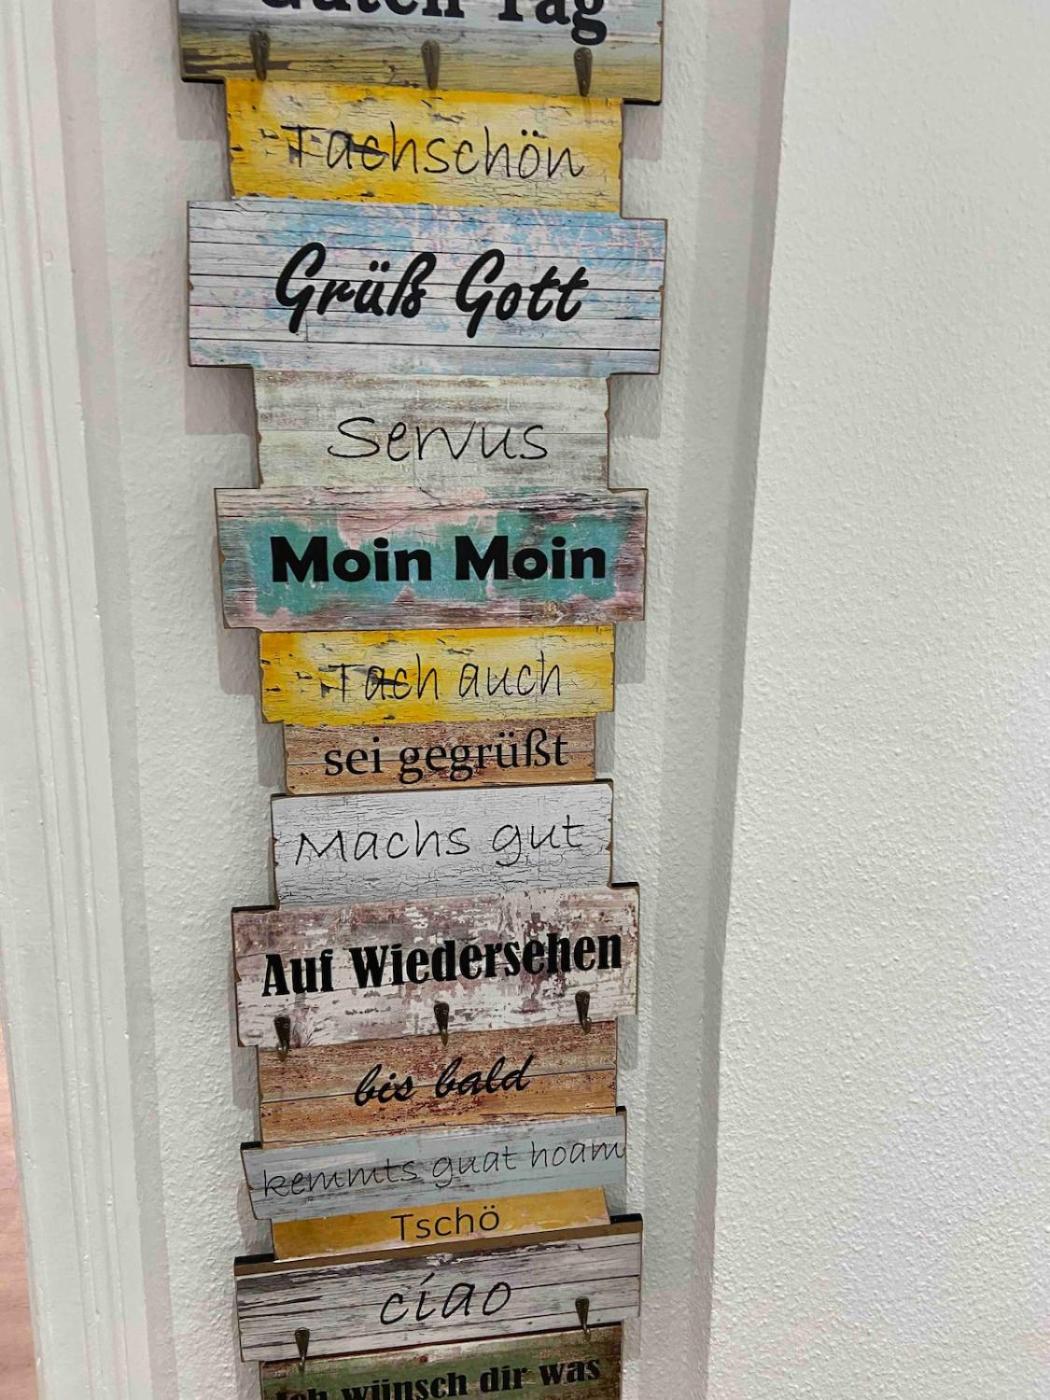 Guten Tag
Tachschön
Grüß Gott
Servus
Moin Moin
Tach auch
sei gegrüßt
Machs gut
Auf Wiedersehen
bis bald
kemmts guat hoam
Tschö
ciao
Ich wünsch dir was